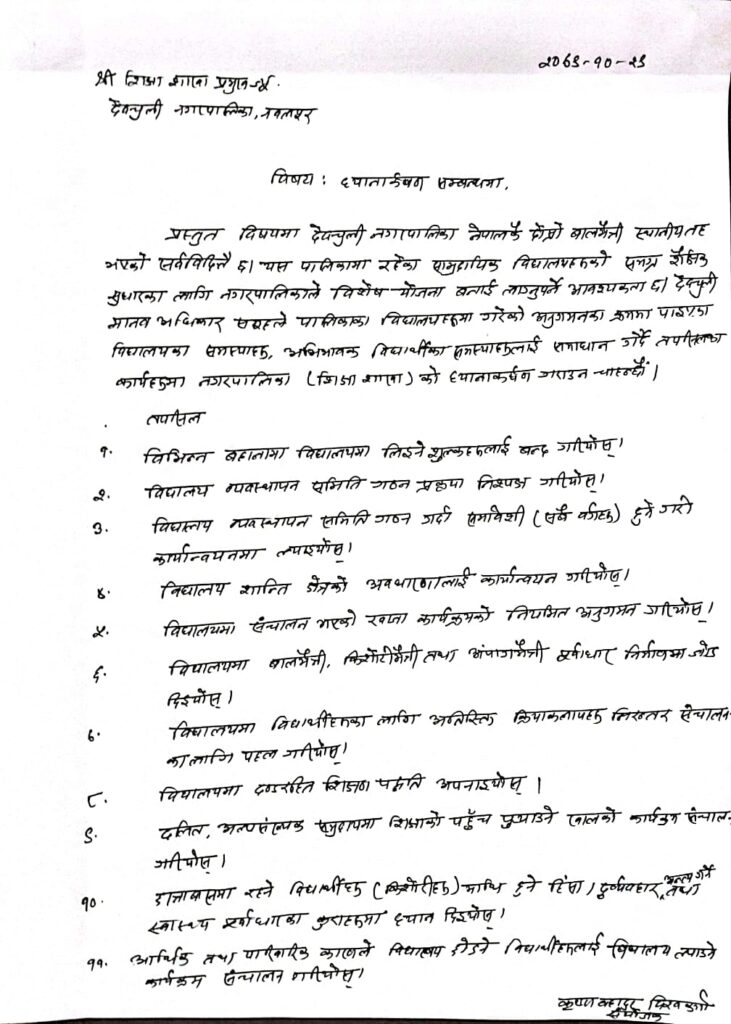 २०७९-१०-२९
श्री शिक्षा शाखा प्रमुखज्यू
देवचुली नगरपालिका, नवलपुर
विषय: ध्यानार्कषण सम्बन्धमा.
प्रस्तुत विषयमा देवचुली नगरपालिका नेपालकै दोस्रो बालमैत्री स्थानीय तह
भएको सर्वविदितै छ। यस पालिकामा रहेका सामुदायिक विद्यालयहरुको समग्र शैक्षिक
सुधारका लागि नगरपालिकाले विशेष योजना बनाई लाग्नुपर्ने आवश्यकता छ। देवचुली
मानव अधिकार समूहले पालिकाका विद्यालयहरुमा गरेको अनुगमनका क्रममा पाइएका
विद्यालयका समस्याहरु, अभिभावक विद्यार्थीका समस्याहरुलाई समाधान गर्दै तपसिलका
कार्यहरुमा नगरपालिका (शिक्षा शाखा) को ध्यानाकर्षण गराउन चाहन्छौं।
तपसिल
१. विभिन्न बहानामा विद्यालयमा लिइने शुल्कहरुलाई बन्द गरियोस्।
२. विद्यालय व्यवस्थापन समिति गठन प्रक्रया निश्पक्ष गरियोस्।
३. विद्यालय व्यवस्थापन समिति गठन गर्दा समावेशी (सबै वर्गहरु) हुने गरी
कार्यान्वयनमा ल्याइयोस्।
४. विद्यालय शान्ति क्षेत्रको अवधारणालाई कार्यान्वयन गरियोस्।
५. विद्यालयमा संचालन भएको खाजा कार्यक्रमको नियमित अनुगमन गरियोस्।
६. विद्यालयमा बालमैत्री, किशोरीमैत्री तथा अपांगमैत्री पूर्वाधार निर्माणमा जोड
दिइयोस्।
७. विद्यालयमा विद्यार्थीहरुका लागि अतिरिक्त क्रियाकलापहरु निरन्तर संचालन
का लागि पहल गरियोस्।
८. विद्यालयमा दण्डरहित शिक्षण पद्धति अपनाइयोस् ।
९. दलित, अल्पसंख्यक समुदायमा शिक्षाको पहुँच पुर्‍याउने खालको कार्यक्रम संचालन
गरियोस्।
१०. छात्रावासमा रहने विद्यार्थीहरु (किशोरीहरु) माथि हुने हिंसा, दुर्व्यवहार अन्त्य गर्ने तथा
स्वास्थ्य पूर्वाधारका कुराहरुमा ध्यान दिइयोस्।
११. आर्थिक तथा पारिवारिक कारणले विद्यालय छोड्ने विद्यार्थीहरुलाई विद्यालय ल्याउने
कार्यक्रम संचालन गरियोस्।
कृष्ण बहादुर विश्वकर्मा
संयोजक